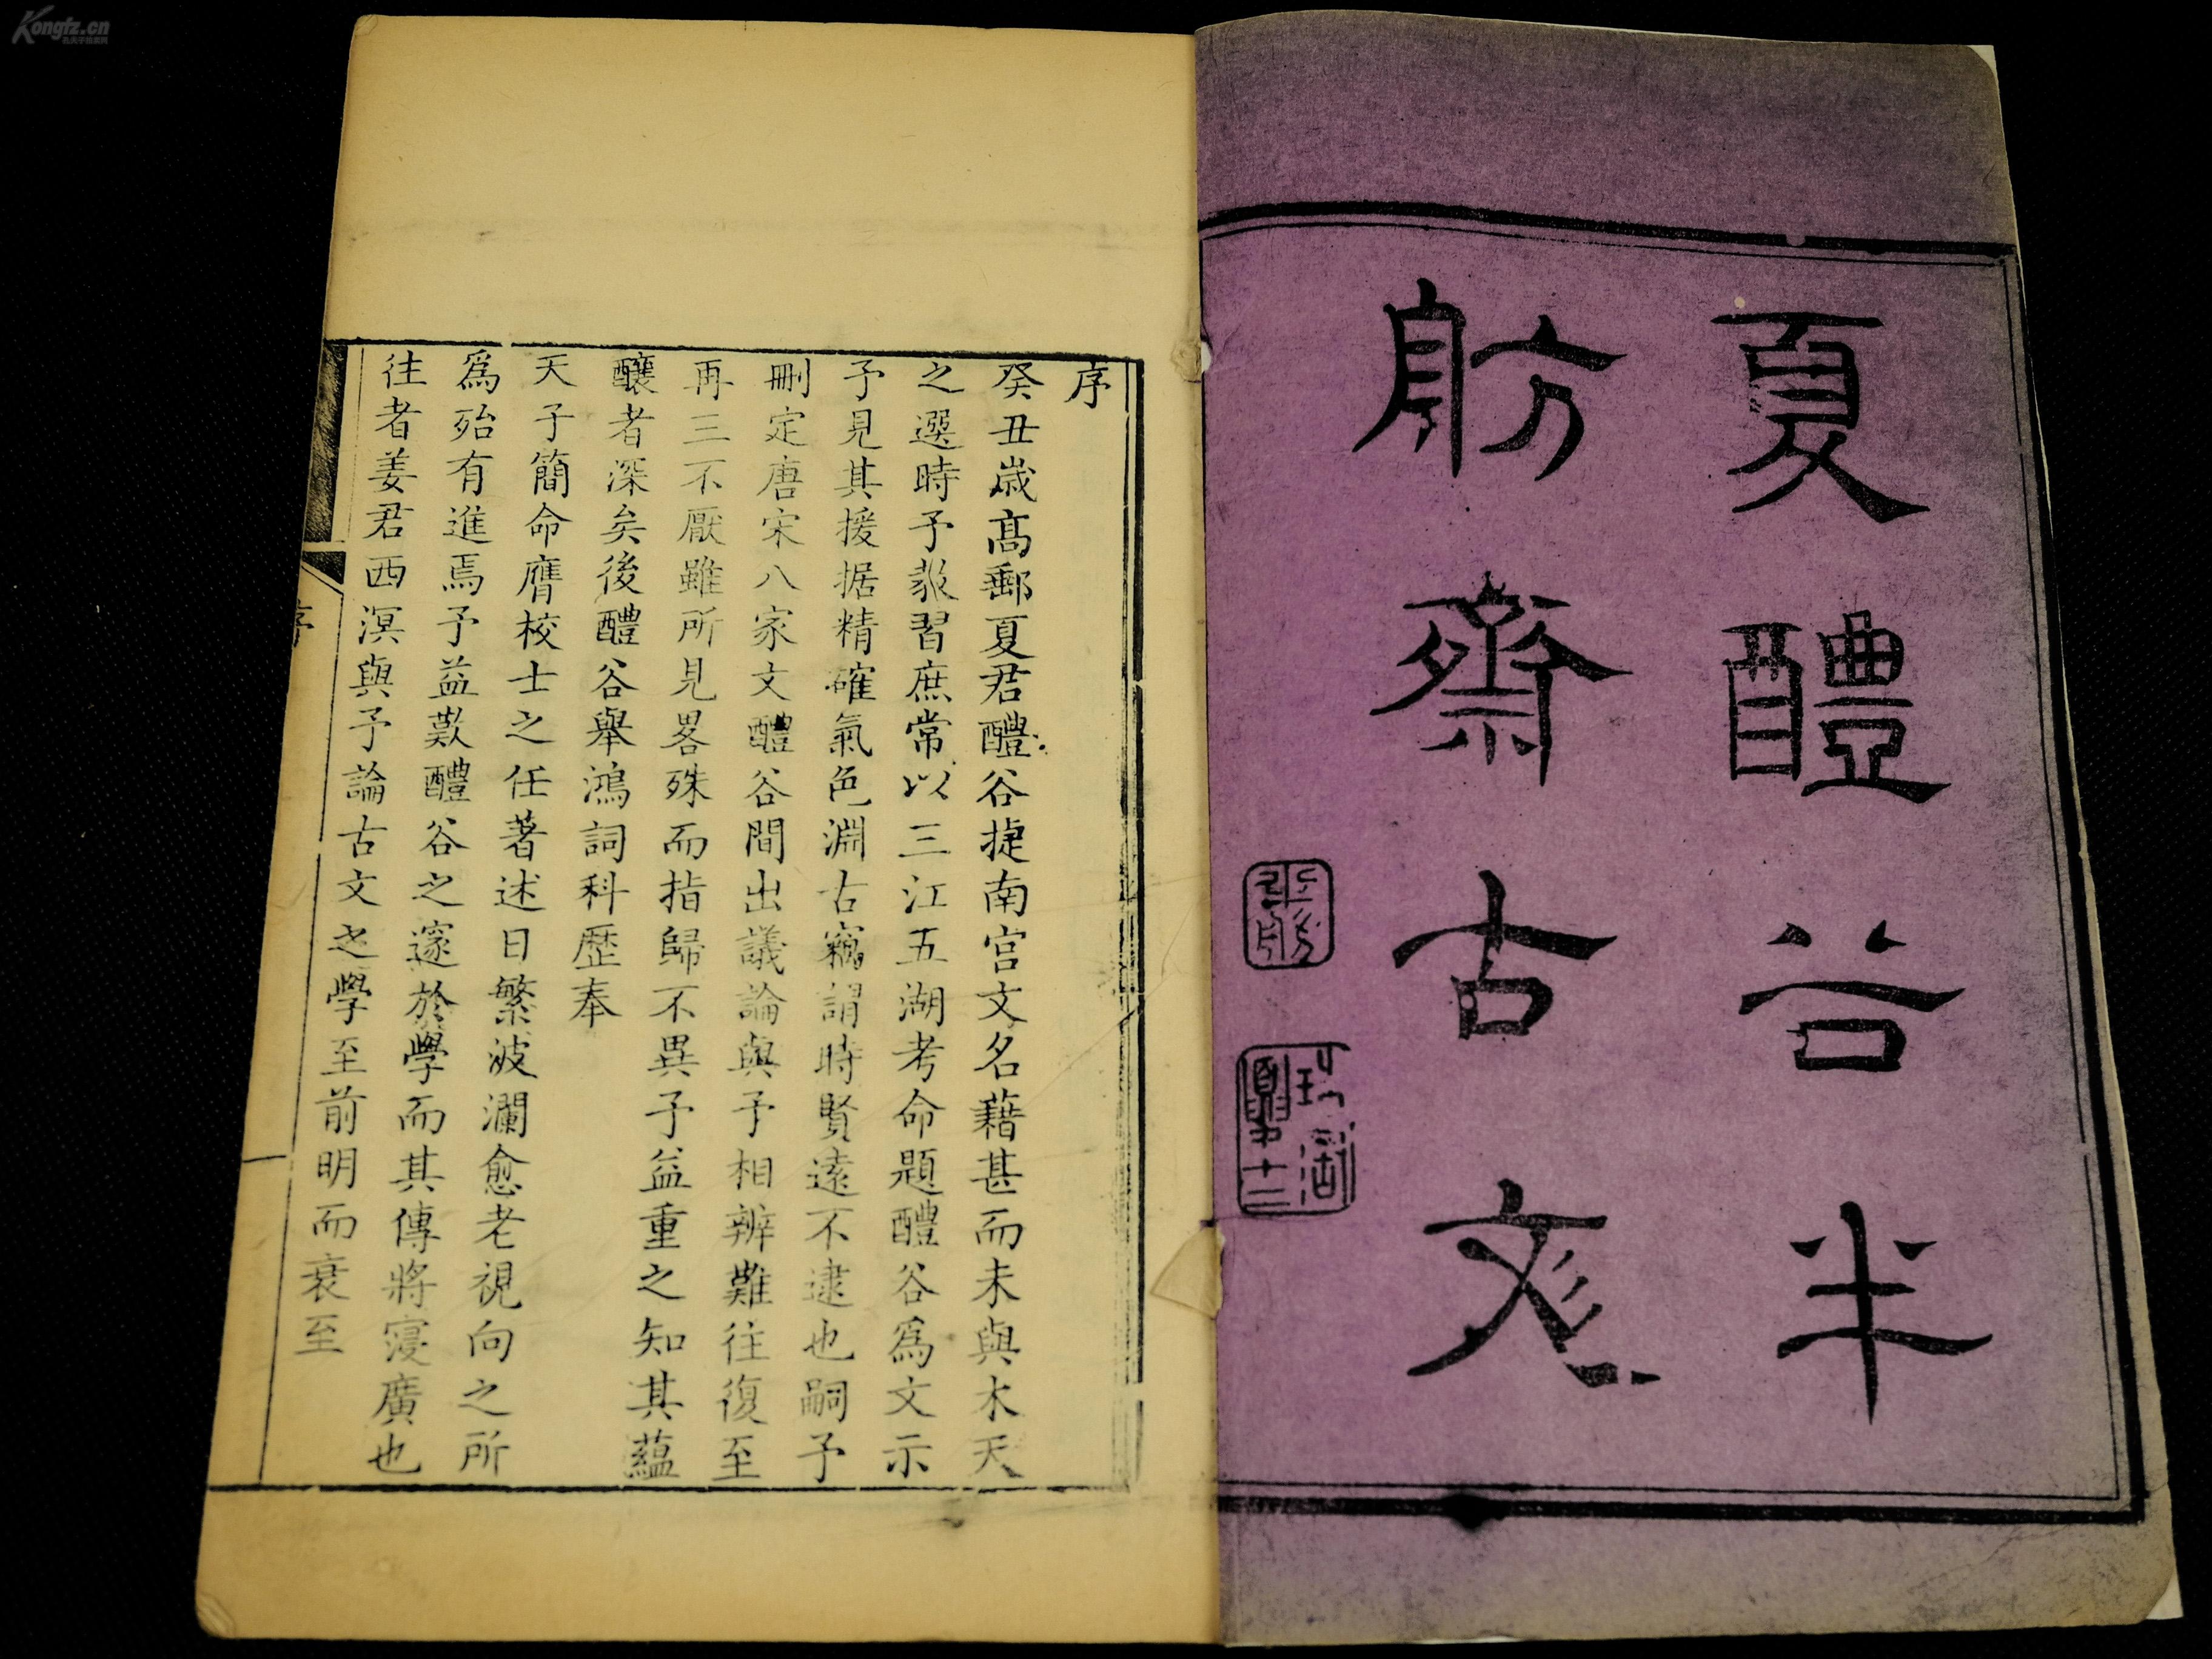 夏醴谷半
舫齋古文
序
癸丑歳髙郵夏君醴谷捷南宫文名藉甚而未與木天
之選時予教習庶常以三江五湖考命題醴谷爲文示
予見其援据精確氣色淵古竊謂時賢遠不逮也嗣予
刪定唐宋八家文醴谷間出議論與予相辨難往復至
再三不厭雖所見畧殊而指歸不異予益重之知其藴
釀者深矣後醴谷舉鴻詞科歷奉
天子簡命膺校士之任著述日繁波瀾愈老視向之所
爲殆有進焉予益歎醴谷之邃於學而其傳將寖廣也
往者姜君西溟與予論古文之學至前明而衰至
序
一
Kongfz.cn